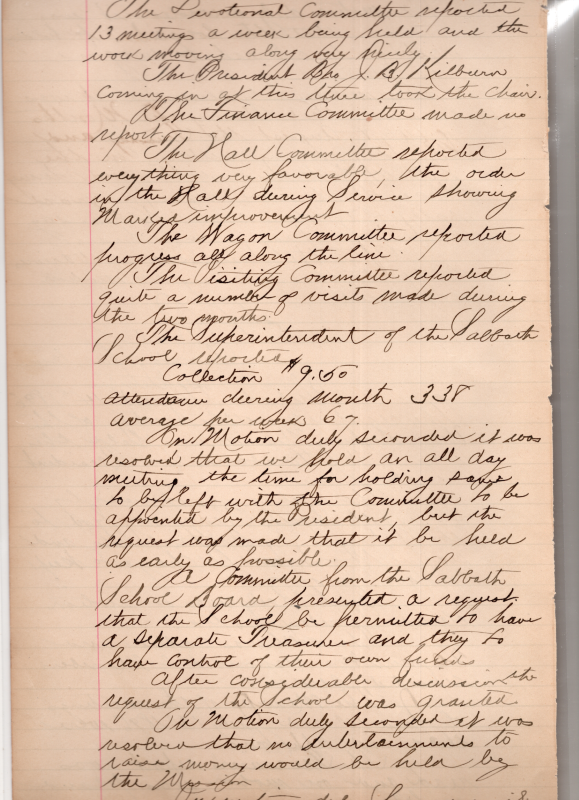 The Devotional Committee reported
13 meetings a week being held and the
work moving along very nicely.
The President Bro. J. B. Kilburn
coming in at this time took the chair.
The Finance Committee made no
report
The Hall Committee reported
everything very favorable, the order
in the Hall during Service showing
Marked improvement
The Wagon Committee reported
progress all along the line.
The Visiting Committee reported
quite a number of visits made during
the two months.
The Superintendent of the Sabbath
School reported
Collection $9.50
attendance during month 338
average per week 67.
On Motion duly seconded it was
resolved that we hold an all day
meeting the time for holding same
to be left with the Committee to be
appointed by the President, but the
request was made that it be held
as early as possible.
A Committee from the Sabbath
School Board, presented a request
that the School be permitted to have
a separate Treasurer and they to
have control of their own funds
After considerable discussion the
request of the School was granted
On Motion duly seconded it was
resolved that no entertainments to
raise money would be held by
the Mission